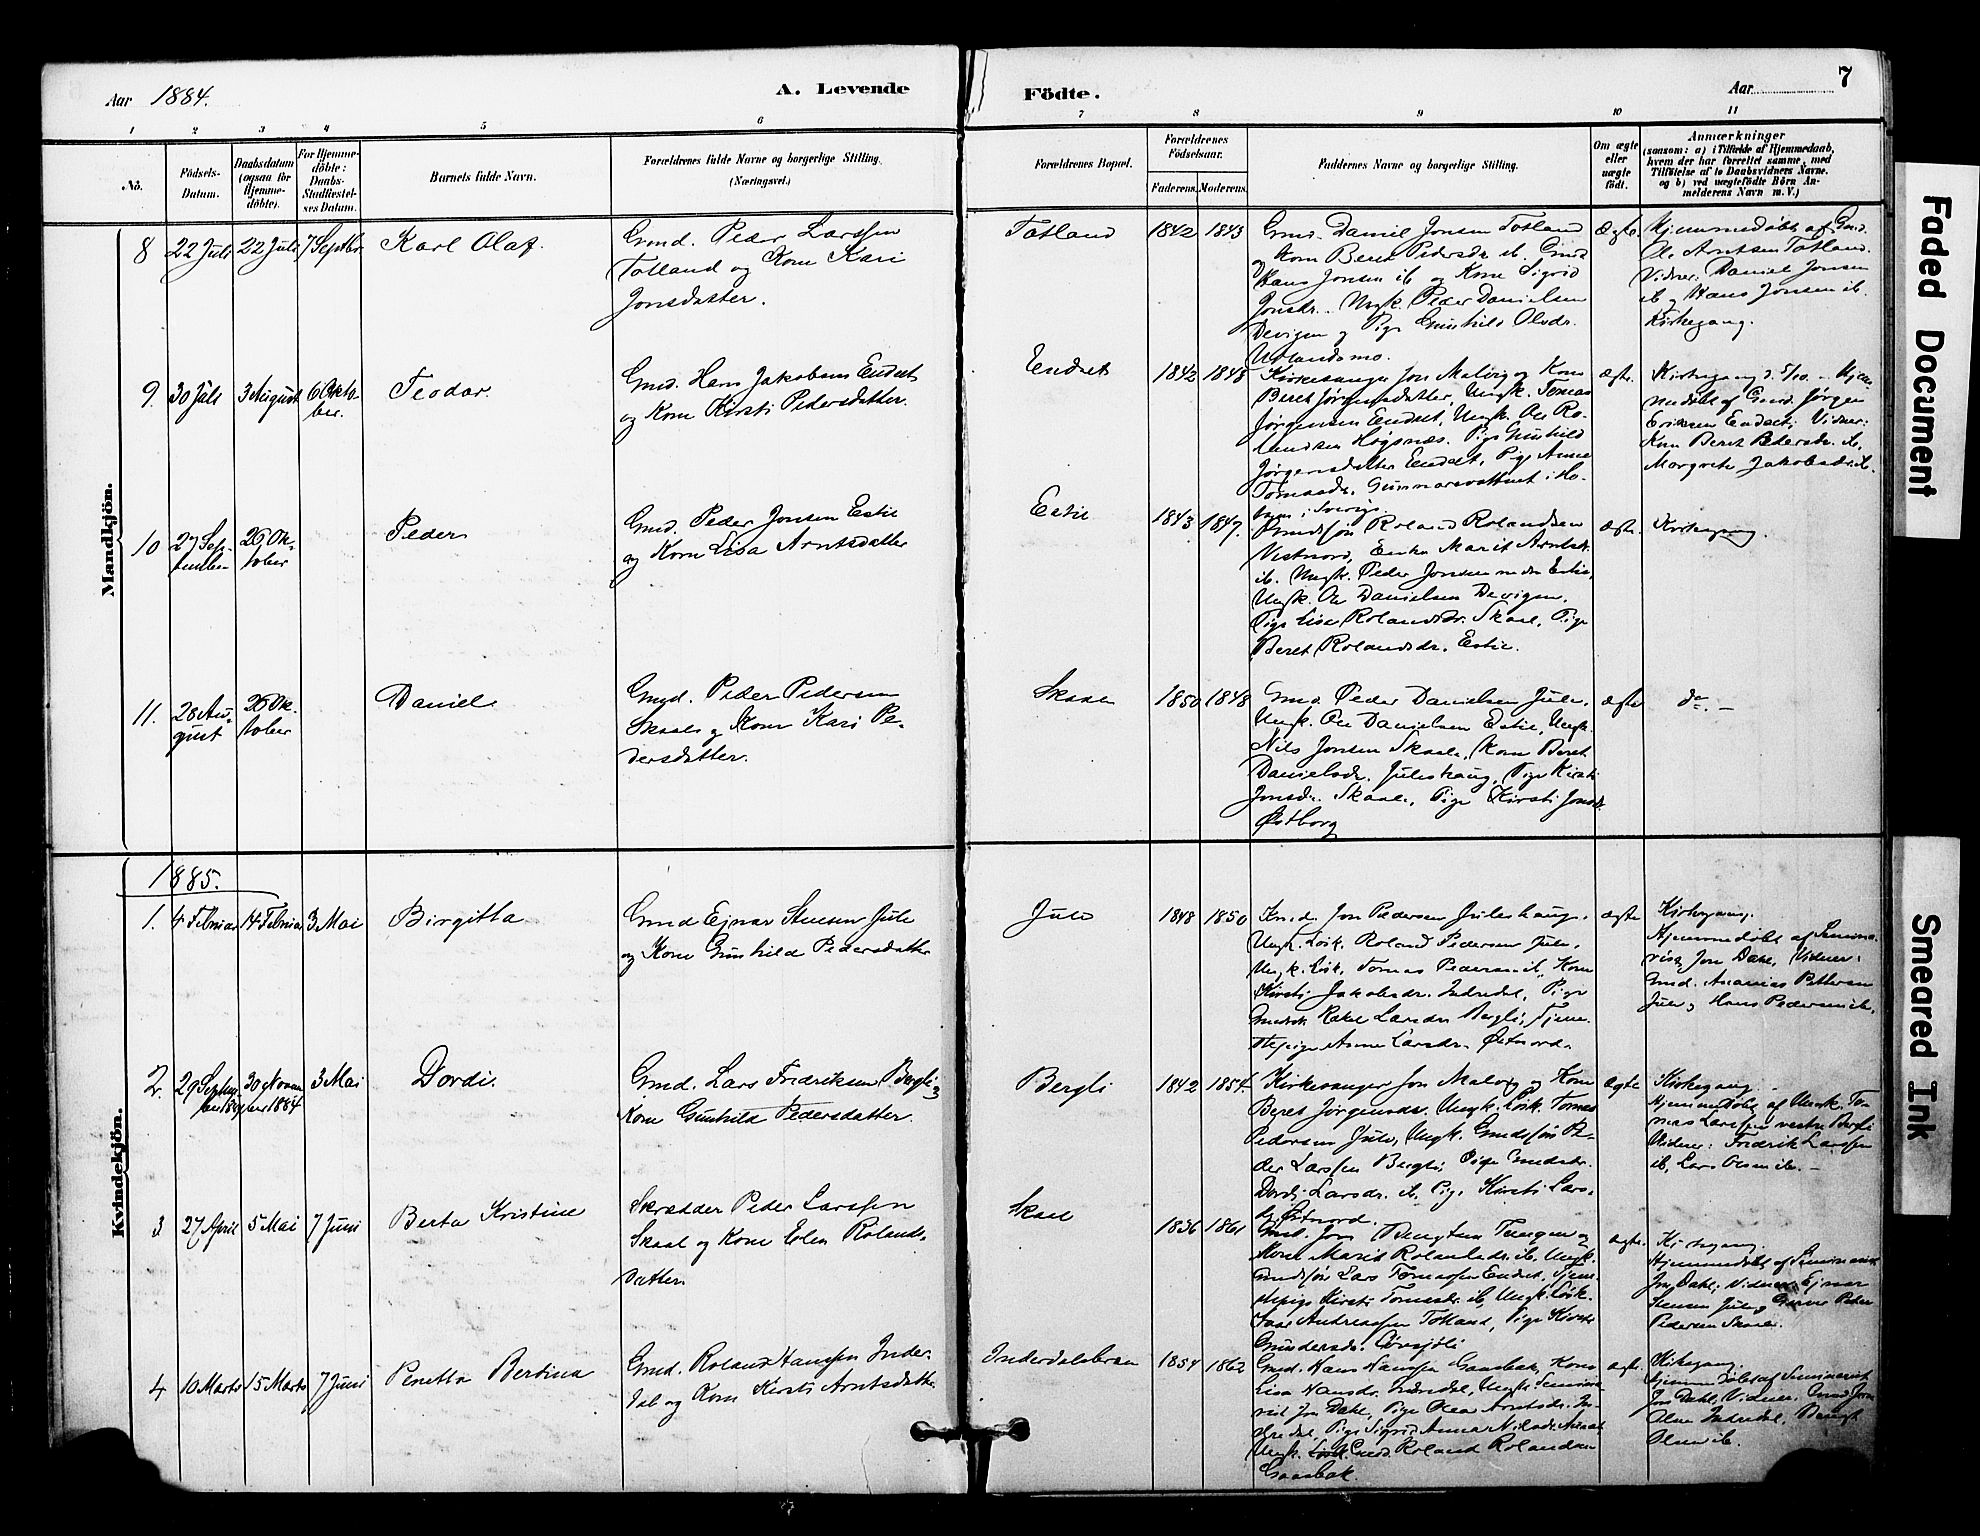 Aar 1884.
A. Levende
Födte.
Aar
7
1 2 3 4 5 6 7 8 9 10 11
No.
Födsels-
Datum.
Daabsdatum
(ogsaa för
Hjemme-
döbte).
For Hjemme-
döbte:
Daabs-
Stadfæstel-
ses Datum.
Barnets fulde Navn.
Forældrenes fulde Navne og borgerlige Stilling.
(Næringsvei.)
Forældrenes Bopæl.
Forældrenes
Födselsaar.
Faderens. Moderens.
Faddernes Navne og borgerlige Stilling.
Om ægte
eller
uægte
födt.
Anmærkninger
(saasom: a) i Tilfælde af Hjemmedaab,
hvem der har forrettet samme, med
Tilföielse af to Daabsvidners Navne.
og b) ved uægtefödte Börn An-
melderens Navn m. V.)
Mandkjön.
8
22 Juli
22 Juli
7 Septbr.
Karl Olaf.
Gmd. Peder Larssen
Totland og Kone Kari
Jonsdatter.
Totland
1842
1843
Gmd. Daniel Jonsen Totland
og Kone Beret Pedersdr. ib. Gmd
Hans Jonsen ib og Kone Sigrid
Jonsdr. Ungk. Peder Danielsen
Devigen og Pige Gunhild Olsdr.
Ægte
Hjemmedøbt af Gmd.
Ole Arntsen Totland.
Vidner: Daniel Jonsen
ib og Hans Jonsen ib.
Kirkegang.
9.
30 Juli
3 August
6 Okto-
ber.
Teodor.
Gmd. Hans Jakobsen Endset
og Kone Kirsti Pedersdatter.
Endset
1842
1848
Kirkesanger Jon Malvig og Kone
Beret Jørgensdatter, Ungk. Tomas
Jørgensen Endset, Ungk. Ole Ro-
landsen Høgsnæs. Pige Gunhild
Jørgensdatter Endset, Pige Anne
Tomasdr. Gunnarsvattnet i Ho-
i Sverige.
ægte.
Kirkegang d. 5/10. Hjem-
medøbt af Gmd. Jørgen
Eriksen Endset; Vidner:
Kone Beret Pedersdr. ib.
Margrete Jakobsdr. ib.
10
27 Sep-
tember
26 Ok-
tober
Peder
Gmd. Peder Jonsen Estil
og Kone Lisa Arntsdatter
Estil
1843
1847.
Gmdssøn Roland Rolandsen
Vestnord, Enke Marit Arntsdr.
ib. Ungk. Peder Jonsen nedre Estil,
Ungk. Ole Danielsen Devigen.
Pige Lisa Rolandsdr. Skael, Pige
Beret Rolandsdr. Estil.
ægte.
Kirkegang.
11.
28 Au-
gust
26 Ok-
tober
Daniel
Gmd. Peder Pedersen
Skaale og Kone Kari Pe-
dersdatter.
Skaale
1850
1848
Gmd. Peder Danielsen Jule.
Ungk. Ole Danielsen Estil, Ungk.
Nils Jonsen Skaale, Kone Beret
Danielsdr. Juleshaug, Pige Kirsti
Jonsdr. Skaale, Pige Kirsti Jonsdr
Østborg
Ægte
do. -
Kvindekjön.
1885.
1.
4 Februar
14 Februar
3 Mai
Birgitta
Gmd Ejnar Stensen Jule
og Kone Gunhild Pedersdatter
Jule
1848
1850
Gmd. Jon Pedersen Juleshaug.
Ungk. Løsk. Roland Pedersen Jule,
Ungk. Løsk. Tomas Pedersen ib, Kone
Kirsti Jakobsdr. Inderdal, Pige
Gmdsdr. Rakel Larsdr Bergli, Tjene-
stepige Anne Larsdr. Østnord.
ægte
Kirkegang.
Hjemmedøbt af Semina-
rist Jon Dahl, Vidner:
Gmd. Ananias Pettersen
Jule og Hans Pedersen ib.
2.
29 Septem-
ber 1884
30 Novem-
ber 1884
3 Mai
Dordi.
Gmd. Lars Fredriksen Bergli og
Kone Gunhild Pedersdatter.
Bergli
1842
1854.
Kirkesanger Jon Malvig og Kone
Beret Jørgensdr. Ungk. Løsk. Tomas
Pedersen Jule, Ungk. Gmdssøn Pe-
der Larssen Bergli, Pige Gmdsdr.
Dordi Larsdr. ib, Pige Kirsti Lars-
dr. Østnord.
ægte
Kirkegang.
Hjemmedøbt af Ungk. To-
mas Larssen vestre Bergli
Vidner: Fredrik Larssen
ib, Lars Olsen ib. -
3
27 April
5 Mai
7 Juni
Berta Kristine
Skrædder Peder Larssen
Skaal og Kone Elen Rolands-
datter.
Skael
1836
1861
Gmd. Jon Bengtsen Tungen og
Kone Marit Rolandsdr. ib, Ungk.
Gmdssøn Lars Tomassen Endset, Tjene-
stepige Kirsti Tomasdr. ib, Ungk. Løsk.
Isak Andreassen Totland, Pige Kirsti
Gundersdr. Sørnjøli
ægte.
Kirkegang.
Hjemmedøbt af Seminarist
Jon Dahl; Vidner: Ejnar
Stensen Jule og Peder
Pedersen Skaale.
4
10 Marts
15 Marts
7 Juni
Penetta Bertina
Gmd. Roland Hanssen Inder-
dal og Kone Kirsti Arntsdatter.
Inderdalsbran
1854
1862
Gmd. Hans Hanssen Gaasbak, Kone
Lisa Hansdr. Inderdal, Ungk. Semina-
rist Jon Dahl, Pige Olea Arntsdr. In-
derdal, Pige Sigrid Anna Nilsdr.
Ungk. Gmd. Roland Rolandsen
Gaasbak.
ægte.
Kirkegang.
Hjemmedøbt af Seminarist
Jon Dahl, Vidner: Gmd. Jonn
Olsen Inderdal, Bengt
Olsen ib.
Faded Document
Smeared Ink